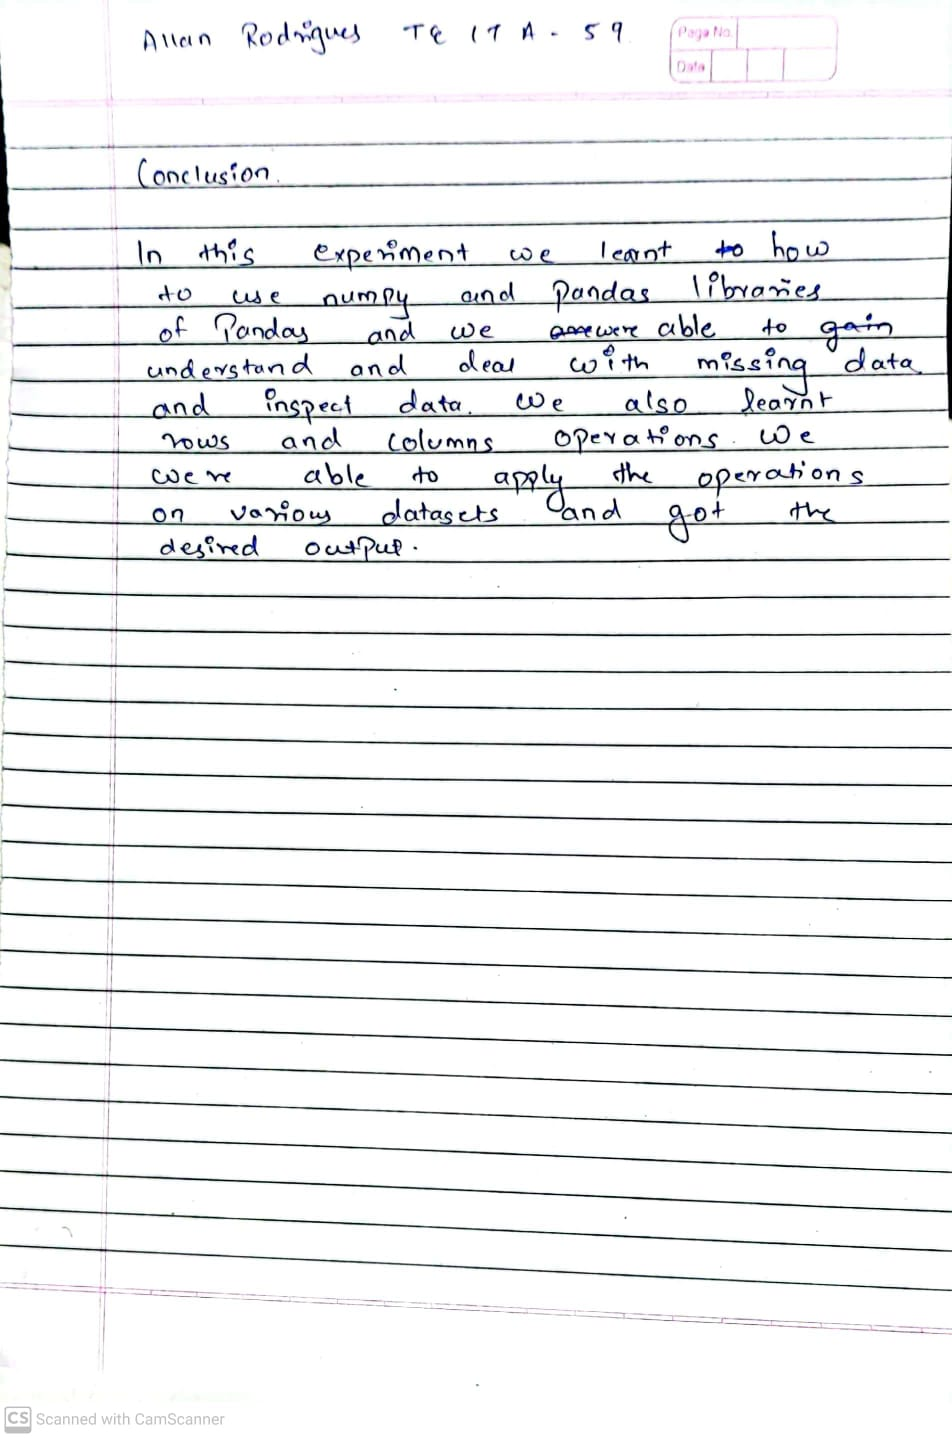 Allan Rodrigues TE IT A - 59
Page No.
Date
Conclusion.
In this experiment we learnt to how
to use numpy and Pandas libraries
of Pandas and we are were able to gain
understand and deal with missing data
and inspect data. we also learnt
rows and columns operations. We
were able to apply the operations
on various datasets and got the
desired output.
CS Scanned with CamScanner